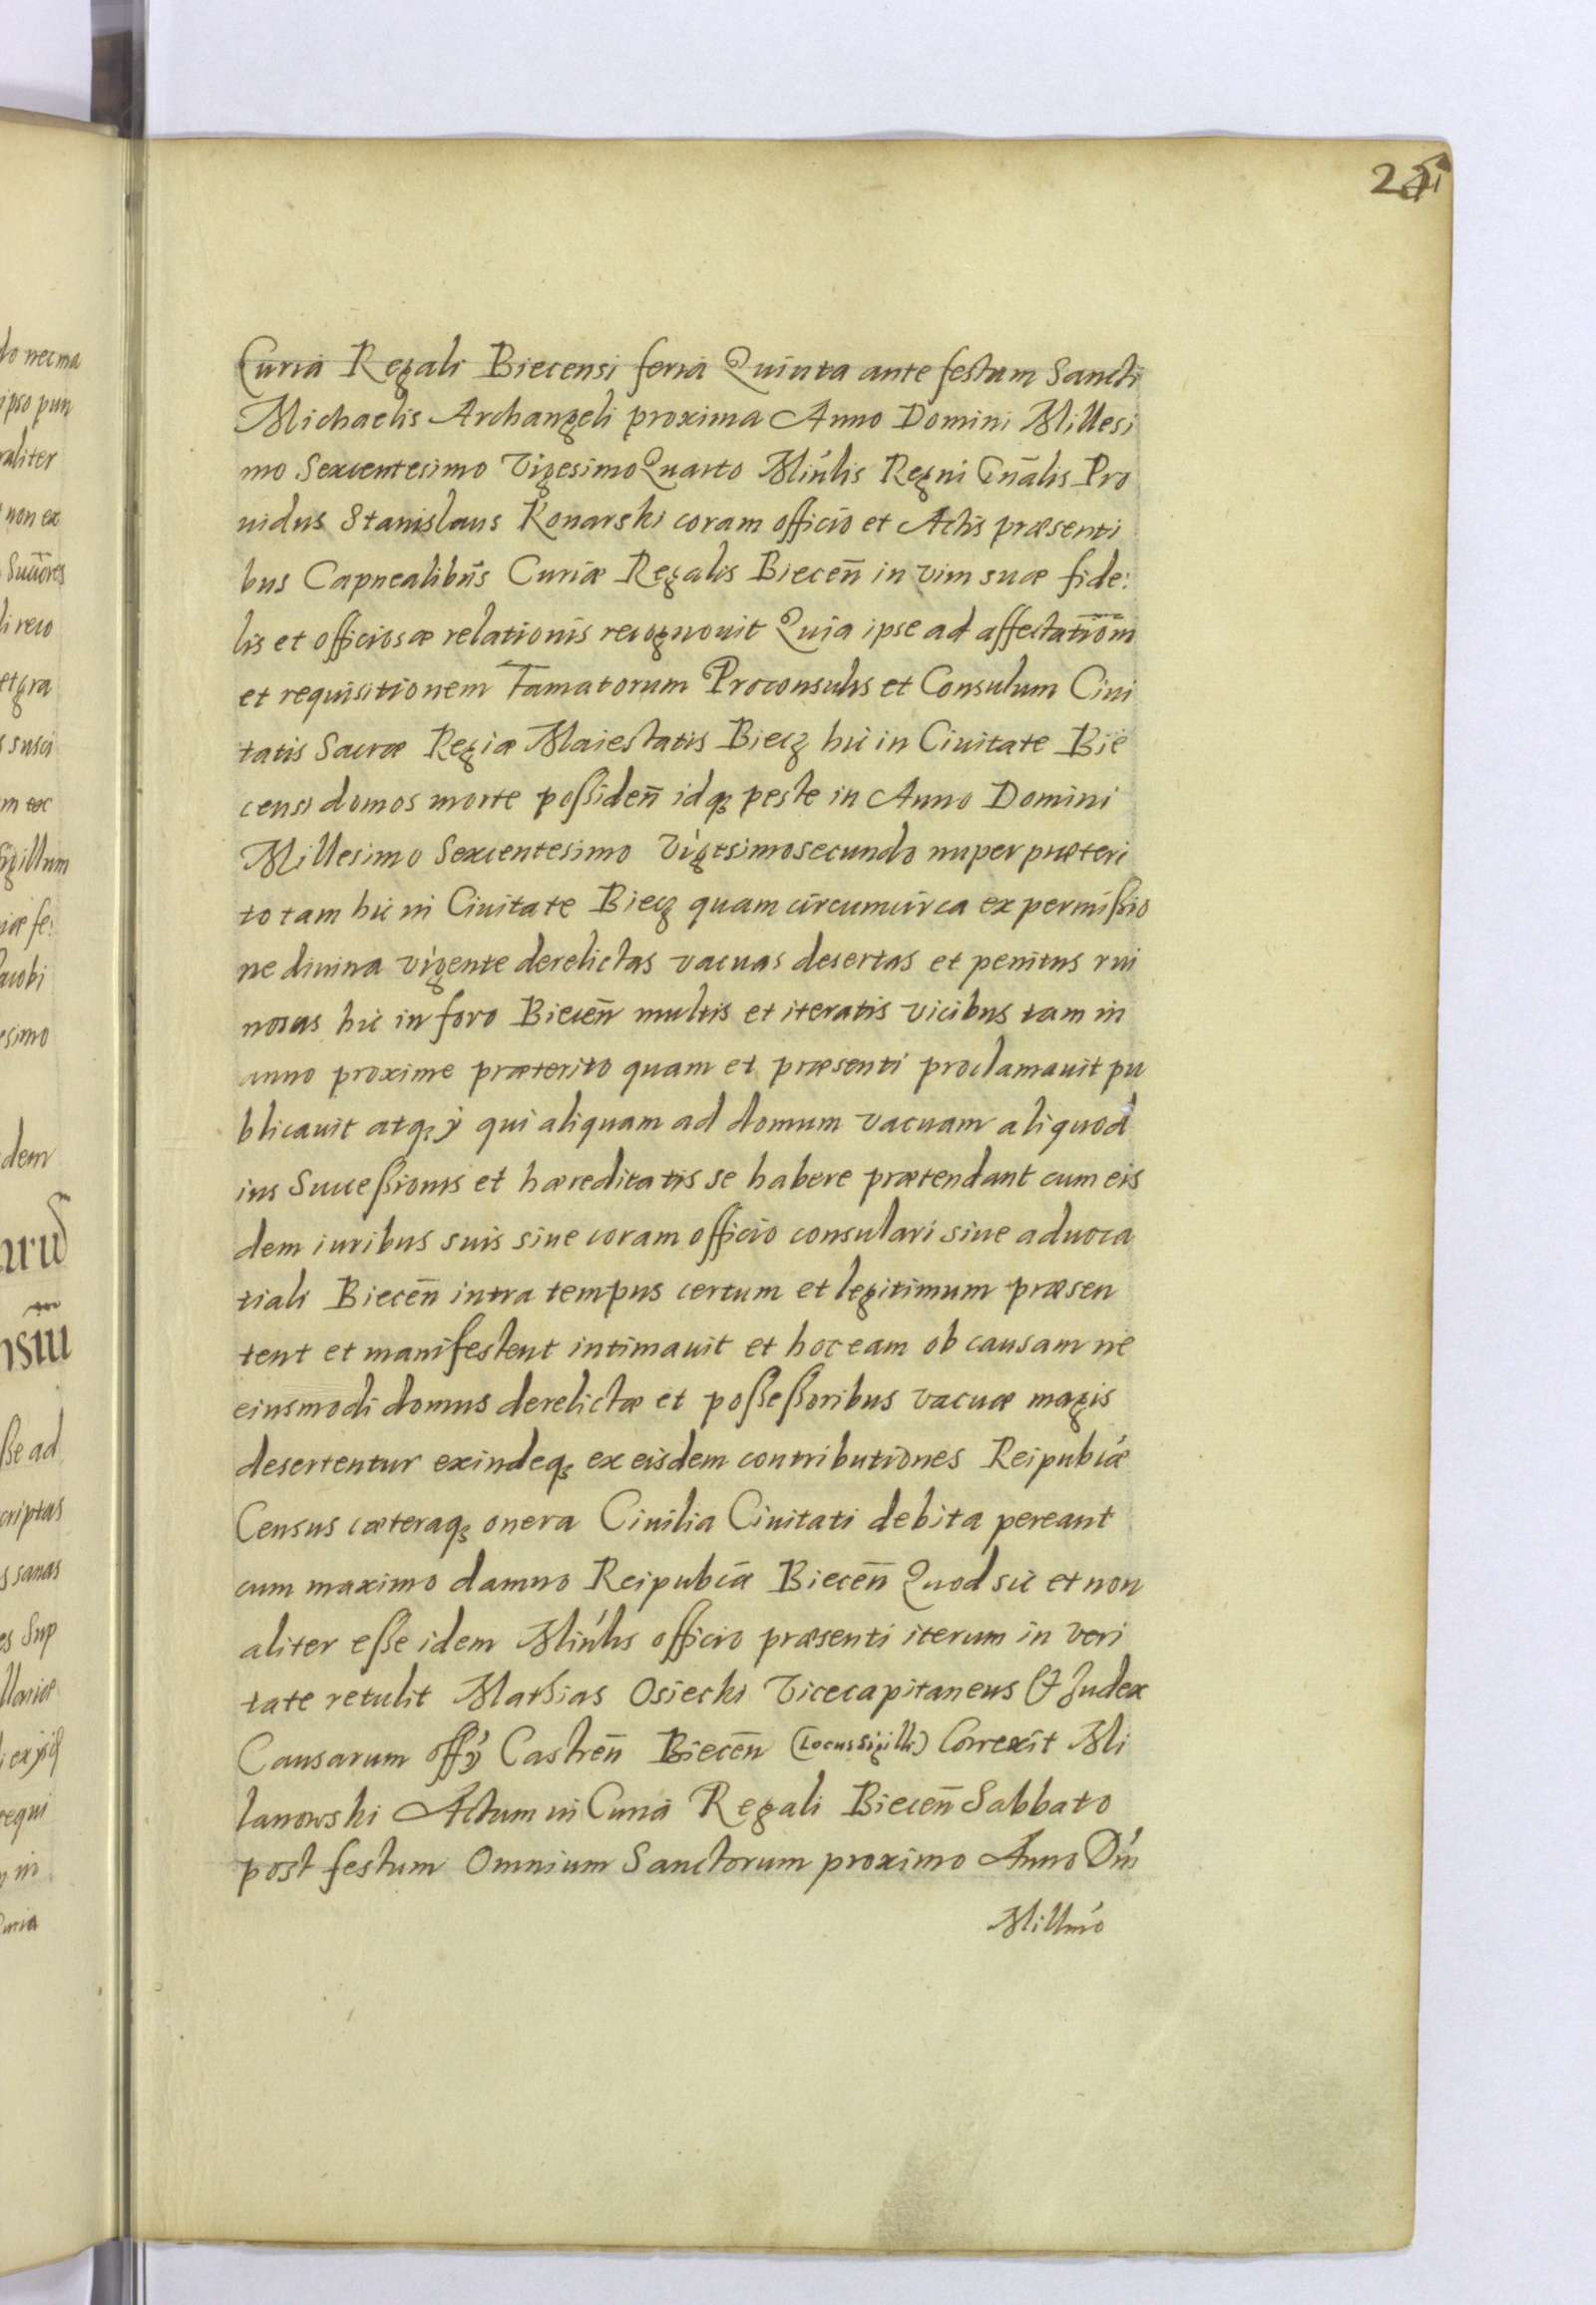 Curia Regali Biecensi feria Quinta ante festum Sancti
Michaelis Archangeli proxima Anno Domini Millesi
mo Sexcentesimo Vigesimo Quarto Minlis Regni Gnalis Pro
uidus Stanislaus Konarski coram officio et Actis præsenti
bus Capnealibus Curiæ Regalis Biecen̄ in vim suæ fide:
lis et officiosæ relationis recognouit Quia ipse ad affectationm
et requisitionem Famatorum Proconsulis et Consulum Ciui
tatis Sacræ Regiæ Maiestatis Biecz hic in Ciuitate Bie
censi domos morte possiden̄ idq₃ peste in Anno Domini
Millesimo Sexcentesimo Vigesimosecundo nuper præteri
to tam hic in Ciuitate Biecz quam circumcirca ex permißio
ne diuina vigente derelictas vacuas desertas et penitus rui
nosas hic in foro Biecen̄ multis et iteratis vicibus tam in
anno proxime præterito quam et præsenti proclamauit pu
blicauit atq₃ ÿ qui aliquam ad domum vacuam aliquod
ius Succeßionis et hæreditatis se habere prætendant cum eis
dem iuribus suis siue coram officio consulari siue aduoca
tiali Biecen̄ intra tempus certum et legitimum præsen
tent et manifestent intimauit et hoc eam ob causam ne
eiusmodi domus derelictæ et poßeßoribus vacuæ magis
desertentur exindeq₃ ex eisdem contributiones Reipubcæ
Census cæteraq₃ onera Ciuilia Ciuitati debita pereant
cum maximo damno Reipubcæ Biecen̄ Quod sic et non
aliter eße idem Minlis officio præsenti iterum in veri
tate retulit Mathias Osiecki Vicecapitaneus & Judex
Causarum offÿ Castren̄ Biecen̄ (Locus Sigilli) Correxit Mi
lanowski Actum in Curia Regali Biecen̄ Sabbato
post festum Omnium Sanctorum proximo Anno Dni
Millmo